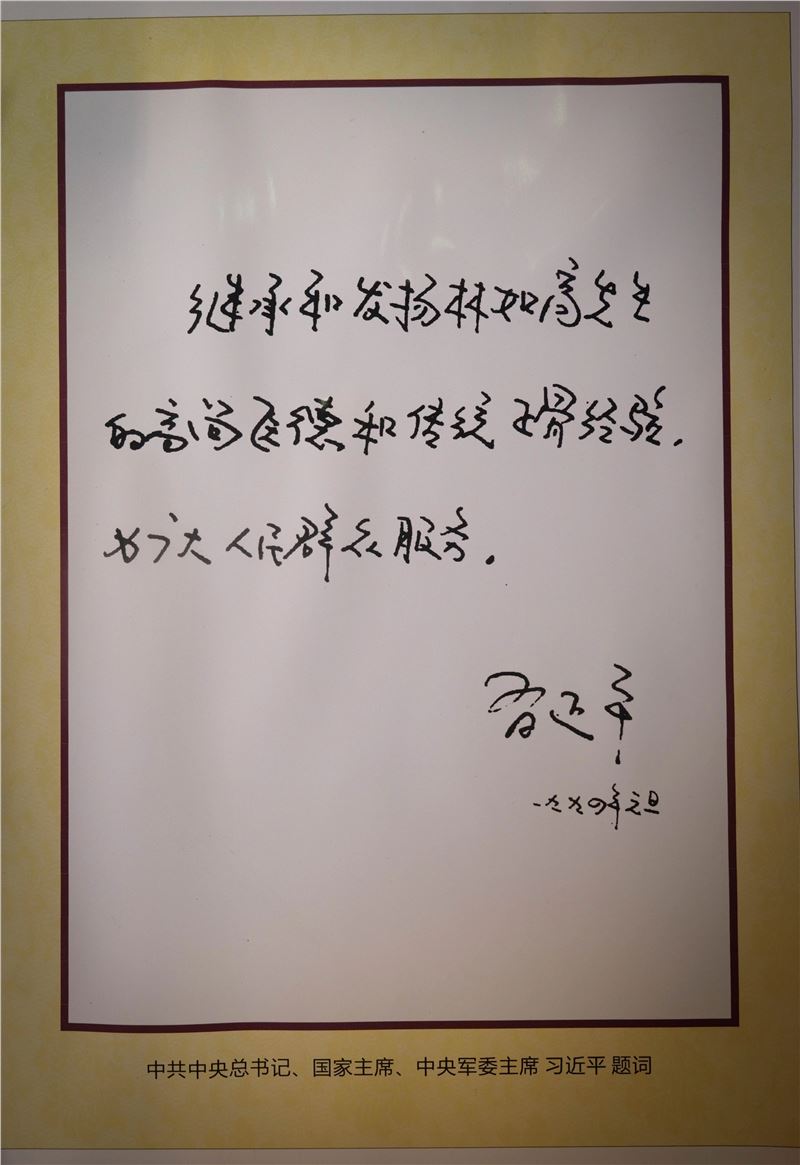 继承和发扬林如高先生
的高尚医德和传统正骨经验,
为广大人民群众服务.
习近平
一九九四年元旦
中共中央总书记、国家主席、中央军委主席 习近平 题词